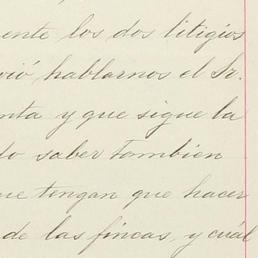 ente los dos litigios
vió hablarnos el Sr.
nta y que sigue la
do saber tambien
ue tengan que hacer
de las fincas, y cuál